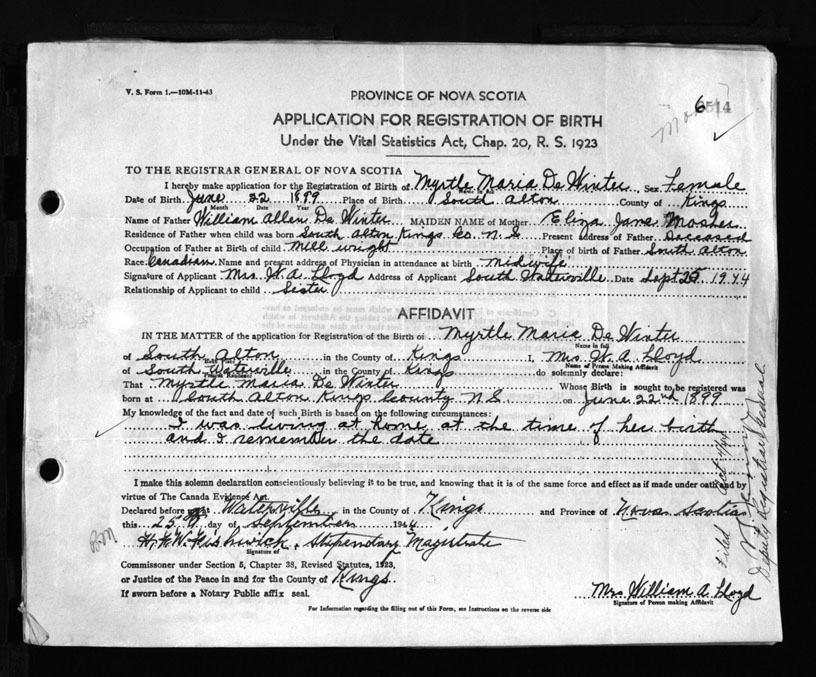 V. S. Form 1.—10M-11-43
PROVINCE OF NOVA SCOTIA
6514
APPLICATION FOR REGISTRATION OF BIRTH
Under the Vital Statistics Act, Chap. 20, R. S. 1923
TO THE REGISTRAR GENERAL OF NOVA SCOTIA
I hereby make application for the Registration of Birth of Myrtle Maria De Winter Sex Female
Date of Birth June 22 1899 Place of Birth South Alton County of Kings
Month Date Year
Name of Father William Allen De Winter MAIDEN NAME of Mother Eliza Jane Mosher
Residence of Father when child was born South Alton Kings Co. N. S. Present address of Father Deceased
Occupation of Father at Birth of child Mill wright Place of birth of Father South Alton
Race Canadian Name and present address of Physician in attendance at birth Midwife
Signature of Applicant Mrs. W. A. Lloyd Address of Applicant South Waterville Date Sept 25 1944
Relationship of Applicant to child Sister
AFFIDAVIT
IN THE MATTER of the application for Registration of the Birth of Myrtle Maria De Winter
Name in full
of South Alton in the County of Kings I, Mrs. W. A. Lloyd
Name of Person Making Affidavit
of South Waterville in the County of Kings do solemnly declare:
That Myrtle Maria De Winter Whose Birth is sought to be registered was
born at South Alton Kings County N. S. on June 22nd 1899
My knowledge of the fact and date of such Birth is based on the following circumstances:
I was living at home at the time of her birth
and I remember the date
I make this solemn declaration conscientiously believing it to be true, and knowing that it is of the same force and effect as if made under oath and by
virtue of The Canada Evidence Act.
Declared before me at Waterville in the County of Kings and Province of Nova Scotia
this 25 day of September 1944
Stipendiary Magistrate
Signature of
Commissioner under Section 5, Chapter 38, Revised Statutes, 1923,
or Justice of the Peace in and for the County of Kings
If sworn before a Notary Public affix seal.
Mrs William A. Lloyd
Signature of Person making Affidavit
For Information regarding the filling out of this Form, see Instructions on the reverse side
Filed Oct
Deputy Registrar General